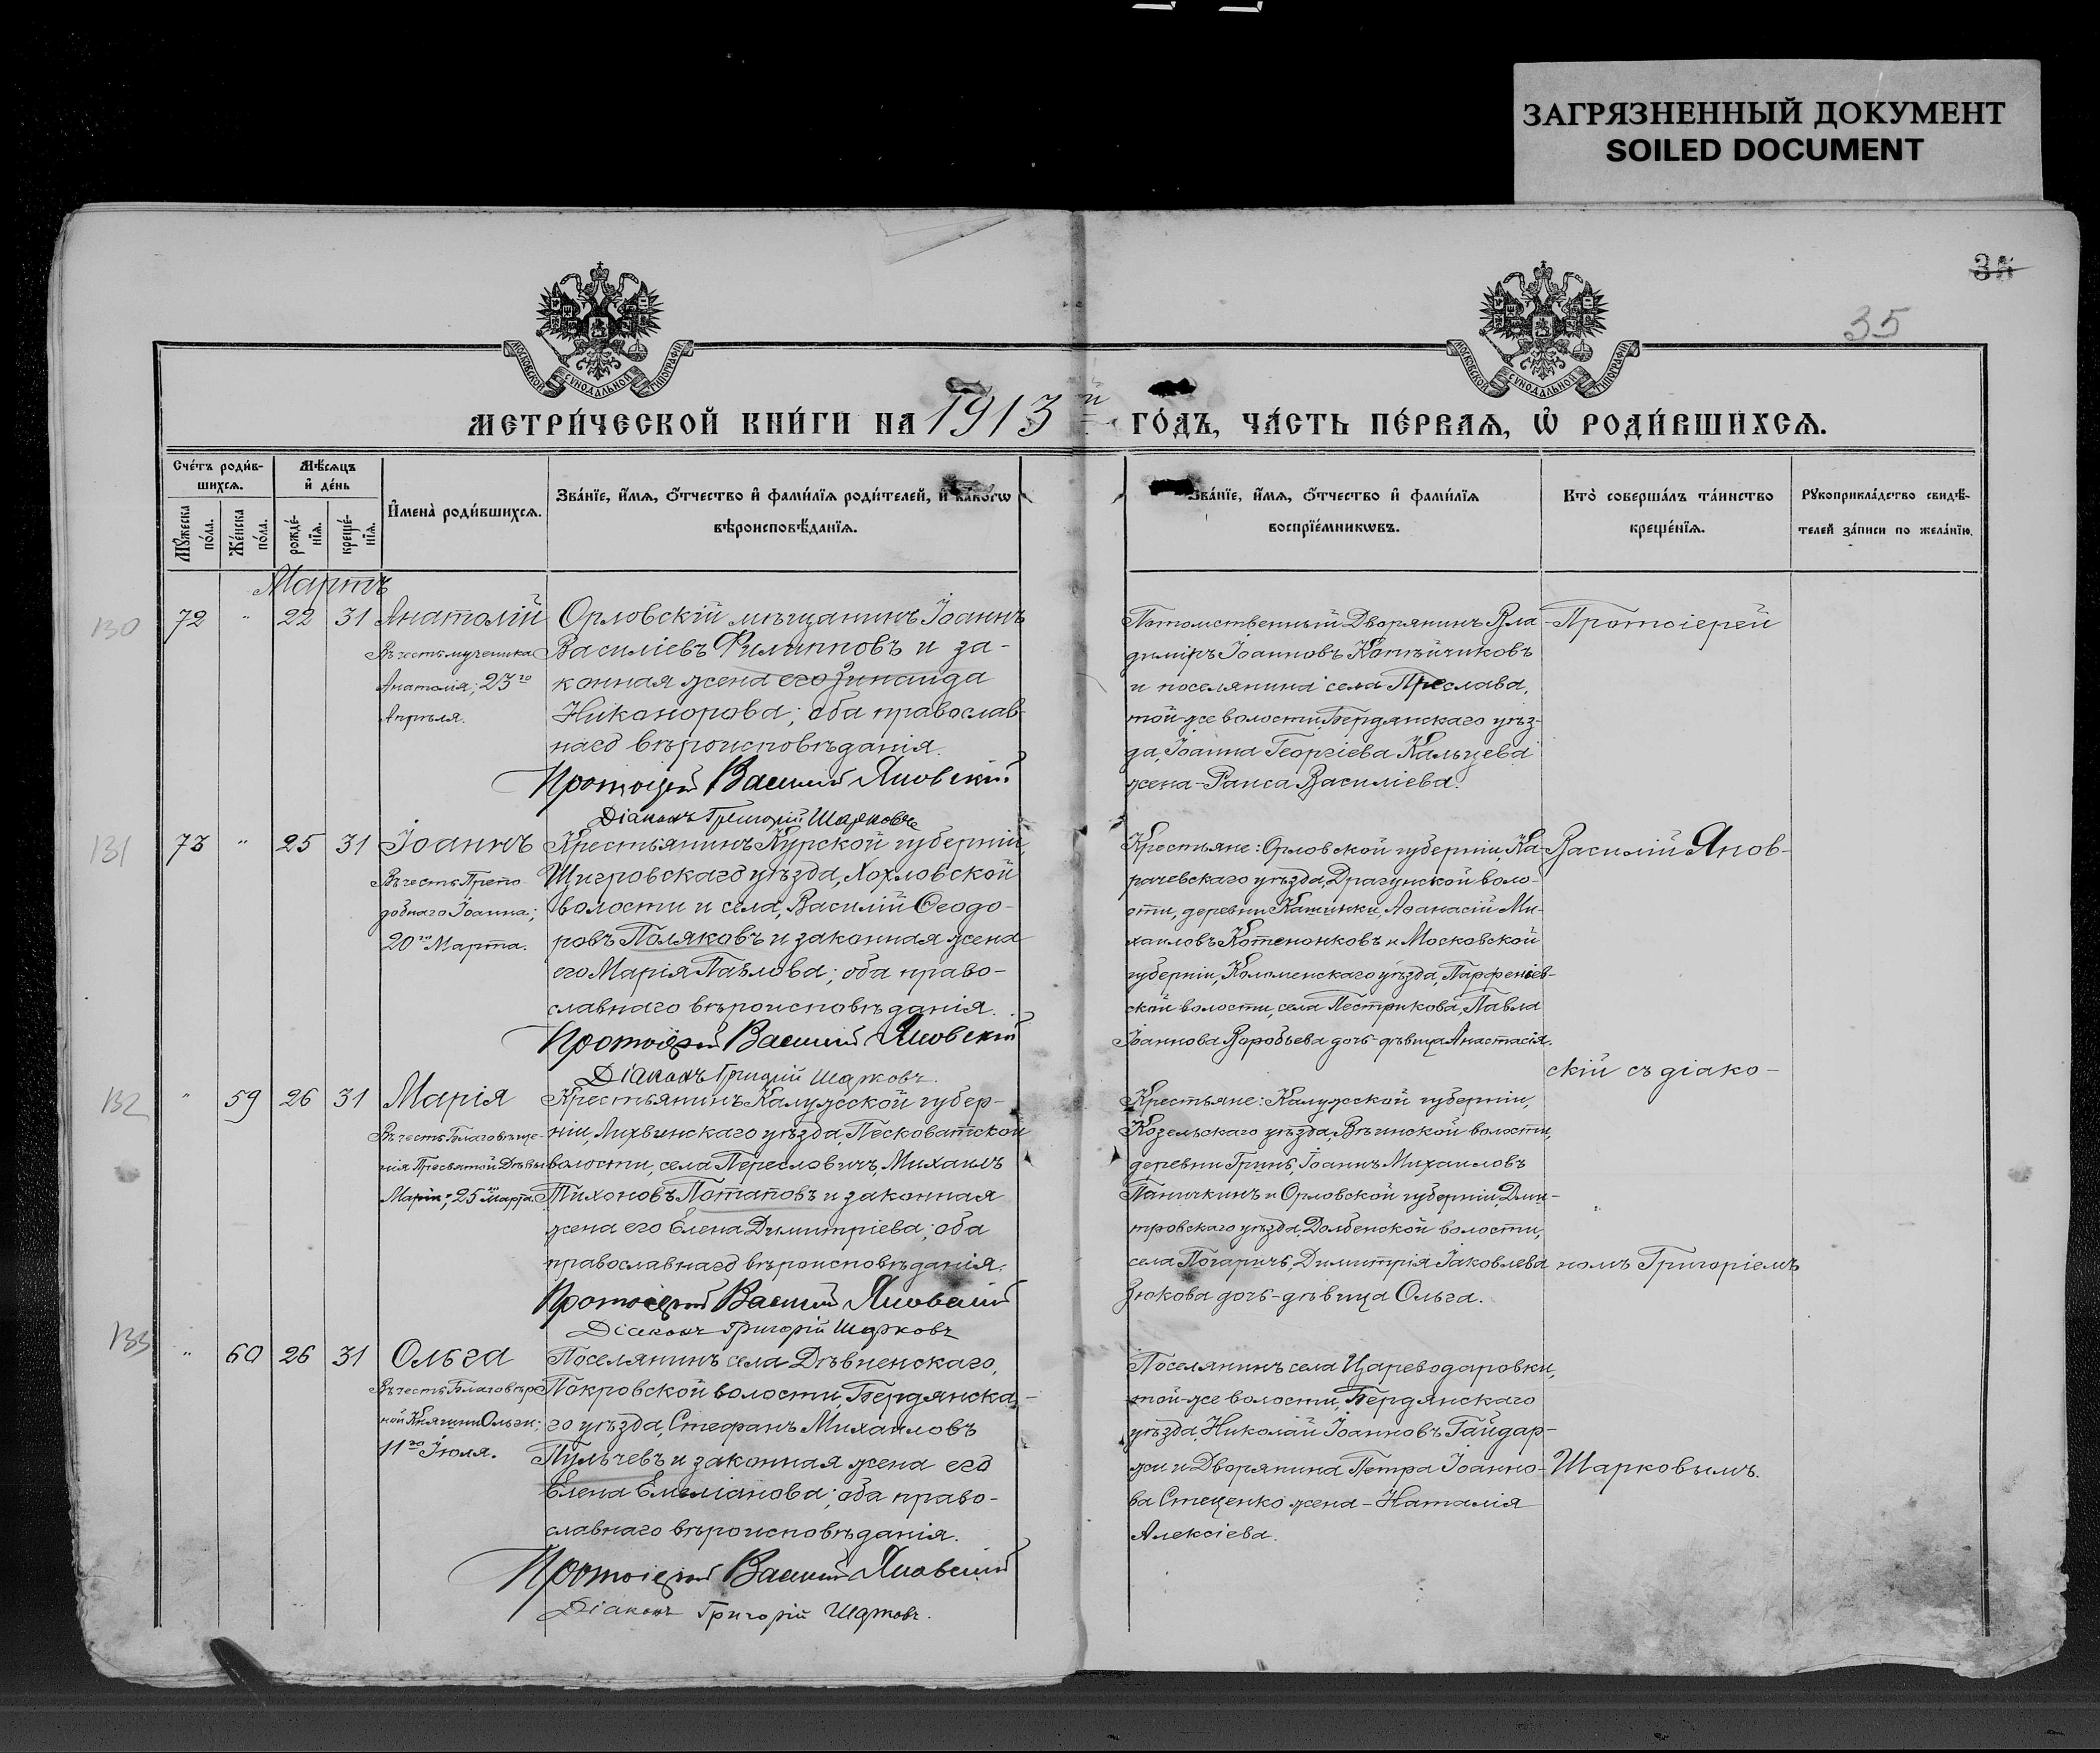 ЗАГРЯЗНЕННЫЙ ДОКУМЕНТ
SOILED DOCUMENT
35
МОСКОВСКОЙ СѴНОДАЛЬНОЙ ТИПОГРАФИИ
МОСКОВСКОЙ СѴНОДАЛЬНОЙ ТИПОГРАФИИ
МЕТРИ́ЧЕСКОЙ КНИ́ГИ НА 1913й ГО́ДЪ, ЧА́СТЬ ПЕ́РВАѦ, Ѡ҆ РОДИ́ВШИХСѦ.
Сче́тъ роди́в-
шихсѧ.
Мѣ́сѧцъ
и҆ де́нь
Мꙋ́жеска по́ла.
Же́нска по́ла.
рожде́-нїѧ.
креще́-нїѧ.
И҆мена̀ роди́вшихсѧ.
Зва́нїе, и҆́мѧ, ѻ҆́тчество и҆ фами́лїѧ роди́телей, и҆ како́гѡ
вѣроисповѣ́данїѧ.
Зва́нїе, и҆́мѧ, ѻ҆́тчество и҆ фами́лїѧ
воспрїе́мникѡвъ.
Кто̀ соверша́лъ та́инство
креще́нїѧ.
Рꙋкоприкла́дство свидѣ́-
телей за́писи по жела́нїю.
Мартъ
130
72 " 22 31
Анатолій
Въ честь мученика
Анатолія; 23го
Апрѣля.
Орловскій мѣщанинъ Іоаннъ
Василіевъ Филипповъ и за-
конная жена его Зинаида
Никанорова; оба православ-
наго вѣроисповѣданія.
Протоіерей Василій Яновскій
Діаконъ Григорій Шарковъ
Потомственный Дворянинъ Вла-
диміръ Іоанновъ Котѣйчиковъ
и поселянина села Преслава,
той-же волости, Бердянскаго уѣз-
да, Іоанна Георгіева Кальцева
жена - Раиса Василіева.
Протоіерей
131
73 " 25 31
Іоаннъ
Въ честь Препо-
добнаго Іоанна;
20го Марта.
Крестьянинъ Курской губерніи,
Щигровскаго уѣзда, Хохловской
волости и села, Василій Ѳеодо-
ровъ Поляковъ и законная жена
его Марія Павлова; оба право-
славнаго вѣроисповѣданія.
Протоіерей Василій Яновскій
Діаконъ Григорій Шарковъ.
Крестьяне: Орловской губерніи, Ка-
рачевскаго уѣзда, Драгунской воло-
сти, деревни Кашинки, Аѳанасій Ми-
хаиловъ Котенонковъ и Московской
губерніи, Коломенскаго уѣзда, Парфеніев-
ской волости, села Пестрикова, Павла
Іоаннова Воробьева дочь-дѣвица Анастасія.
Василій Янов-
скій съ діако-
132
" 59 26 31
Марія
Въ честь Благовѣще-
нія Пресвятой Дѣвы
Маріи; 25го Марта.
Крестьянинъ Калужской губер-
ніи, Лихвинскаго уѣзда, Песковатской
волости, села Пересловичъ, Михаилъ
Тихоновъ Потаповъ и законная
жена его Елена Димитріева; оба
православнаго вѣроисповѣданія.
Протоіерей Василій Яновскій
Діаконъ Григорій Шарковъ
Крестьяне: Калужской губерніи,
Козельскаго уѣзда, Вѣинской волости,
деревни Гринь, Іоаннъ Михаиловъ
Паничкинъ и Орловской губерніи, Дми-
тровскаго уѣзда, Долбенской волости,
села Погаричь, Димитрія Іаковлева
Зюкова дочь-дѣвица Ольга.
номъ Григоріемъ
133
" 60 26 31
Ольга
Въ честь Благовѣр-
ной Княгини Ольги;
11го Іюля.
Поселянинъ села Дѣвненскаго,
Покровской волости, Бердянска-
го уѣзда, Стефанъ Михаиловъ
Пульчевъ и законная жена его
Елена Емеліанова; оба право-
славнаго вѣроисповѣданія.
Протоіерей Василій Яновскій
Діаконъ Григорій Шарковъ.
Поселянинъ села Цареводаровки,
той-же волости, Бердянскаго
уѣзда, Николай Іоанновъ Гайдар-
жи и Дворянина Петра Іоанно-
ва Стеценко жена - Наталія
Алексіева.
Шарковымъ.